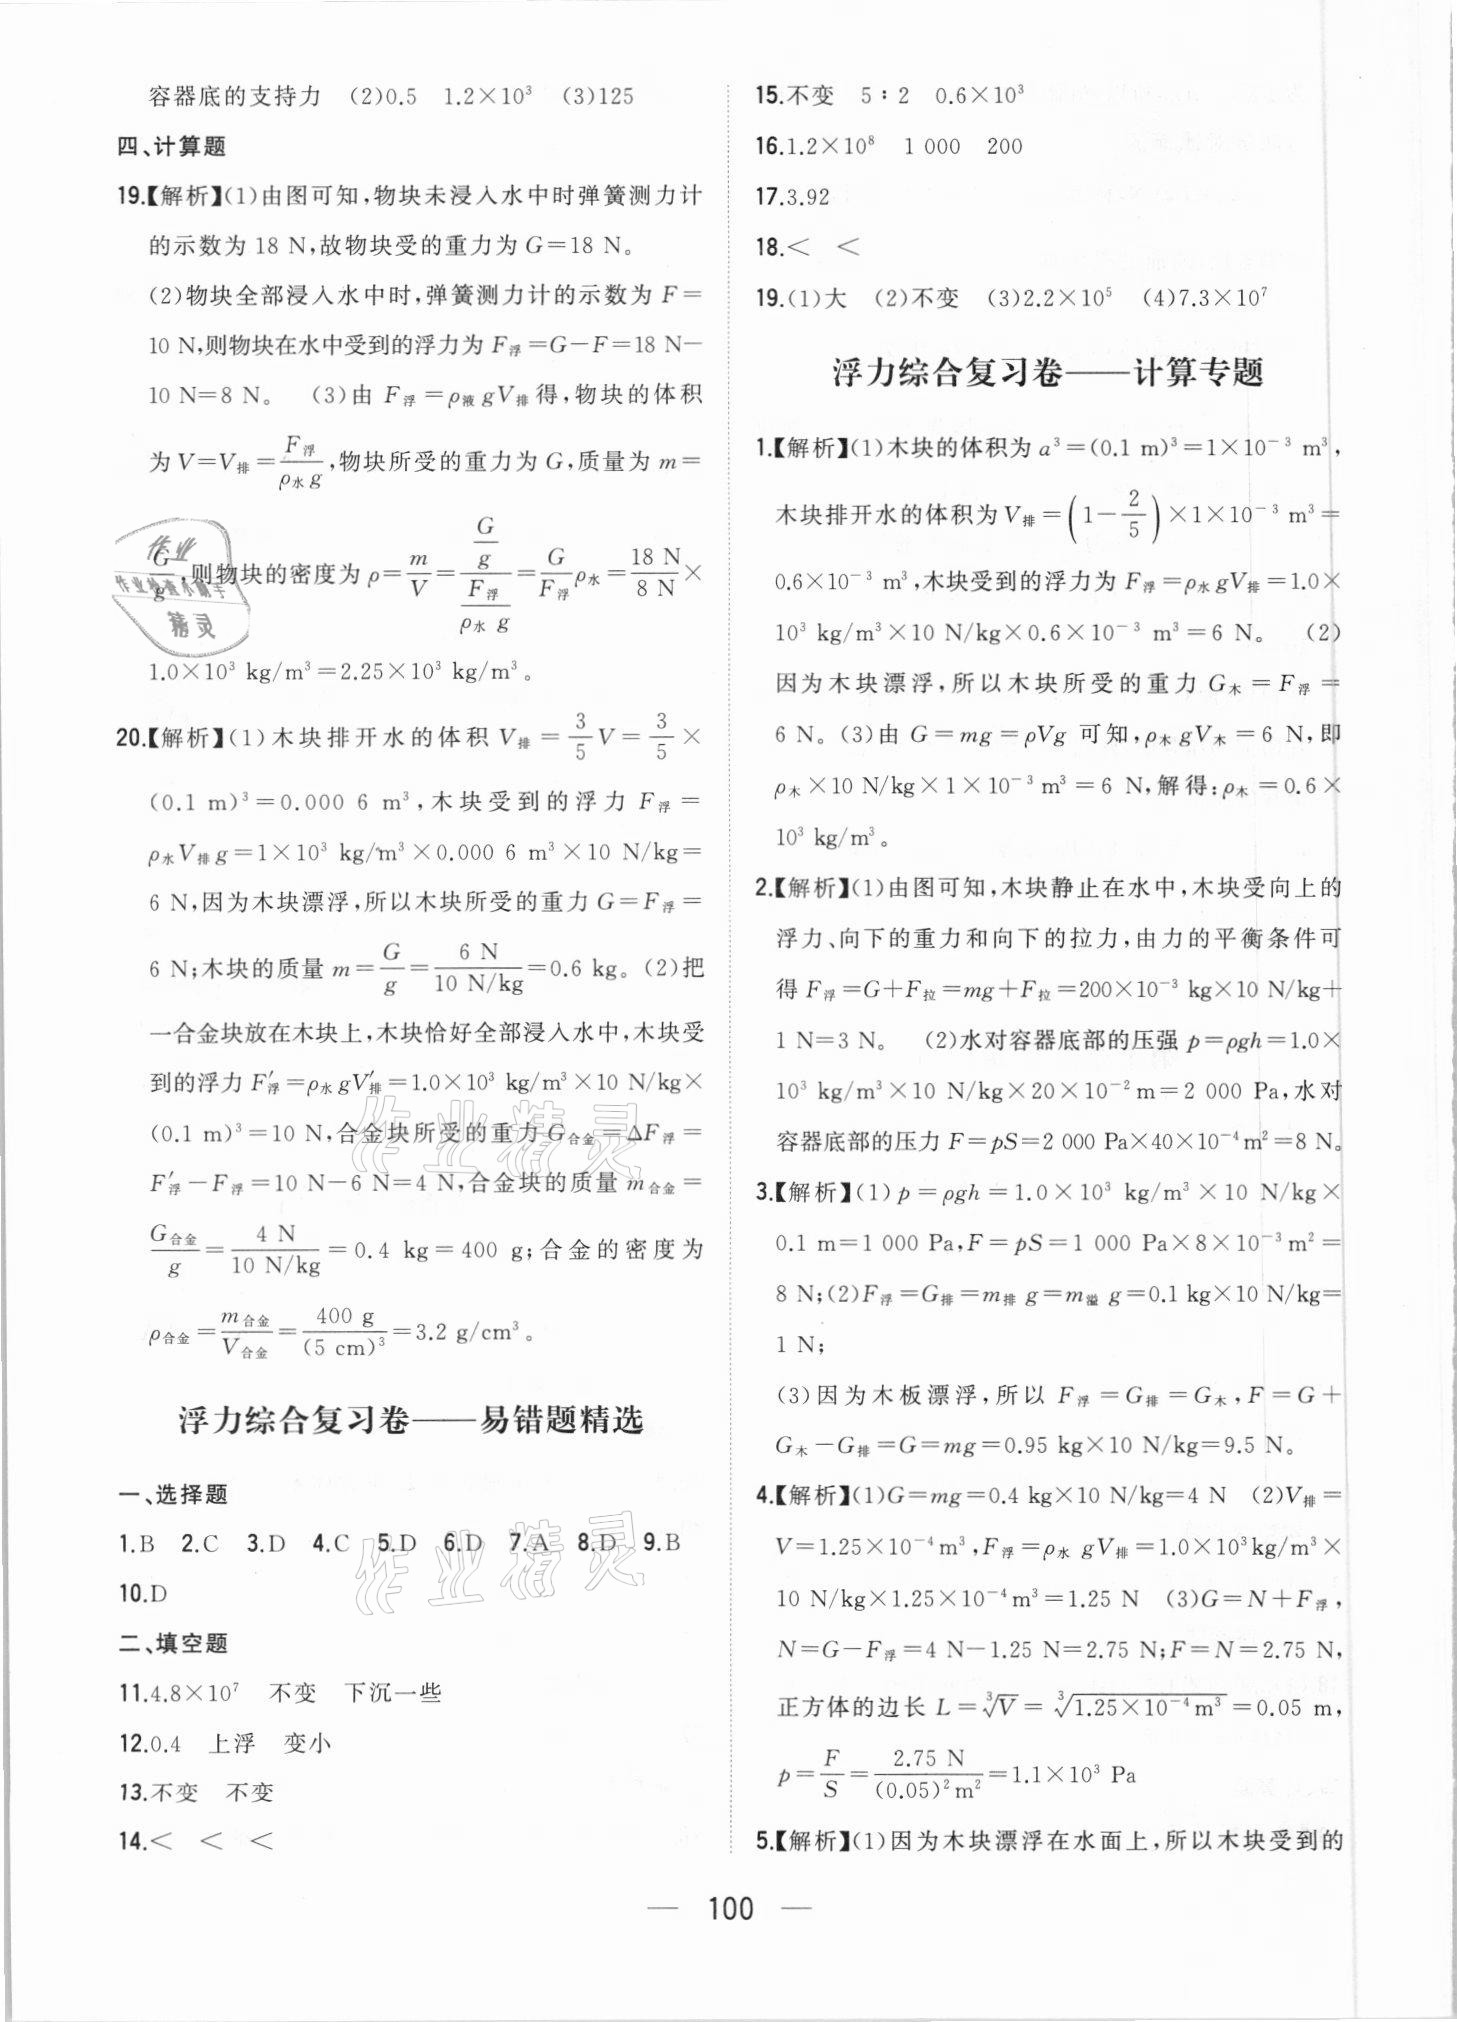 容器底的支持力 (2)0.5 1.2×10³ (3)125
四、计算题
19.【解析】(1)由图可知,物块未浸入水中时弹簧测力计
的示数为 18 N,故物块受的重力为 G=18 N。
(2)物块全部浸入水中时,弹簧测力计的示数为 F=
10 N,则物块在水中受到的浮力为 F浮=G-F=18 N-
10 N=8 N。 (3)由 F浮=ρ液gV排得,物块的体积
为 V=V排=F浮/(ρ水g),物块所受的重力为 G,质量为 m=
G/g,则物块的密度为 ρ=m/V=(G/g)/(F浮/(ρ水g))=(G/F浮)ρ水=(18 N/8 N)×
1.0×10³ kg/m³=2.25×10³ kg/m³。
20.【解析】(1)木块排开水的体积 V排=3/5 V=3/5×
(0.1 m)³=0.000 6 m³,木块受到的浮力 F浮=
ρ水V排g=1×10³ kg/m³×0.000 6 m³×10 N/kg=
6 N,因为木块漂浮,所以木块所受的重力 G=F浮=
6 N;木块的质量 m=G/g=6 N/(10 N/kg)=0.6 kg。(2)把
一合金块放在木块上,木块恰好全部浸入水中,木块受
到的浮力 F′浮=ρ水gV′排=1.0×10³ kg/m³×10 N/kg×
(0.1 m)³=10 N,合金块所受的重力 G合金=ΔF浮=
F′浮-F浮=10 N-6 N=4 N,合金块的质量 m合金=
G合金/g=4 N/(10 N/kg)=0.4 kg=400 g;合金的密度为
ρ合金=m合金/V合金=400 g/(5 cm)³=3.2 g/cm³。
浮力综合复习卷——易错题精选
一、选择题
1.B 2.C 3.D 4.C 5.D 6.D 7.A 8.D 9.B
10.D
二、填空题
11.4.8×10⁷ 不变 下沉一些
12.0.4 上浮 变小
13.不变 不变
14.< < <
15.不变 5∶2 0.6×10³
16.1.2×10⁸ 1 000 200
17.3.92
18.< <
19.(1)大 (2)不变 (3)2.2×10⁵ (4)7.3×10⁷
浮力综合复习卷——计算专题
1.【解析】(1)木块的体积为 a³=(0.1 m)³=1×10⁻³ m³,
木块排开水的体积为 V排=(1-2/5)×1×10⁻³ m³=
0.6×10⁻³ m³,木块受到的浮力为 F浮=ρ水gV排=1.0×
10³ kg/m³×10 N/kg×0.6×10⁻³ m³=6 N。 (2)
因为木块漂浮,所以木块所受的重力 G木=F浮=
6 N。(3)由 G=mg=ρVg 可知,ρ木gV木=6 N,即
ρ木×10 N/kg×1×10⁻³ m³=6 N,解得:ρ木=0.6×
10³ kg/m³。
2.【解析】(1)由图可知,木块静止在水中,木块受向上的
浮力、向下的重力和向下的拉力,由力的平衡条件可
得 F浮=G+F拉=mg+F拉=200×10⁻³ kg×10 N/kg+
1 N=3 N。 (2)水对容器底部的压强 p=ρgh=1.0×
10³ kg/m³×10 N/kg×20×10⁻²m=2 000 Pa,水对
容器底部的压力 F=pS=2 000 Pa×40×10⁻⁴m²=8 N。
3.【解析】(1)p=ρgh=1.0×10³ kg/m³×10 N/kg×
0.1 m=1 000 Pa,F=pS=1 000 Pa×8×10⁻³m²=
8 N;(2)F浮=G排=m排g=m溢g=0.1 kg×10 N/kg=
1 N;
(3)因为木板漂浮,所以 F浮=G排=G木,F=G+
G木-G排=G=mg=0.95 kg×10 N/kg=9.5 N。
4.【解析】(1)G=mg=0.4 kg×10 N/kg=4 N (2)V排=
V=1.25×10⁻⁴m³,F浮=ρ水gV排=1.0×10³kg/m³×
10 N/kg×1.25×10⁻⁴m³=1.25 N (3)G=N+F浮,
N=G-F浮=4 N-1.25 N=2.75 N;F=N=2.75 N,
正方体的边长 L=∛V=∛(1.25×10⁻⁴m³)=0.05 m,
p=F/S=2.75 N/((0.05)²m²)=1.1×10³ Pa
5.【解析】(1)因为木块漂浮在水面上,所以木块受到的
— 100 —
作业
作业检查小助手
精灵
作业精灵
作业精灵